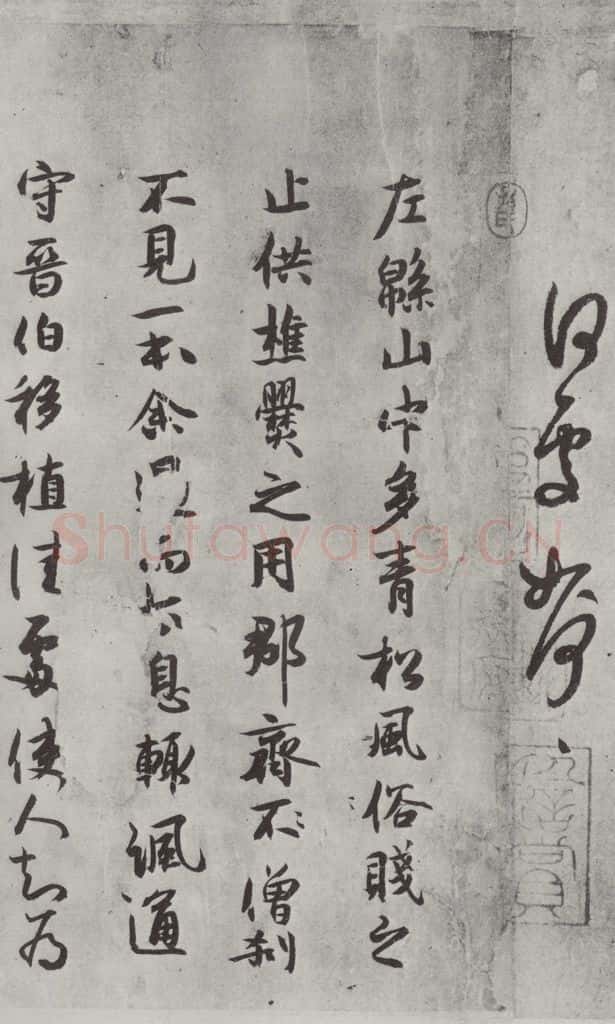 何處如何
左緜山中多青松風俗賤之
止供樵爨之用郡齋不僧刹
不見一本余而太息輒諷通
守晉伯移植佳處使人知為
Shufawang.CN